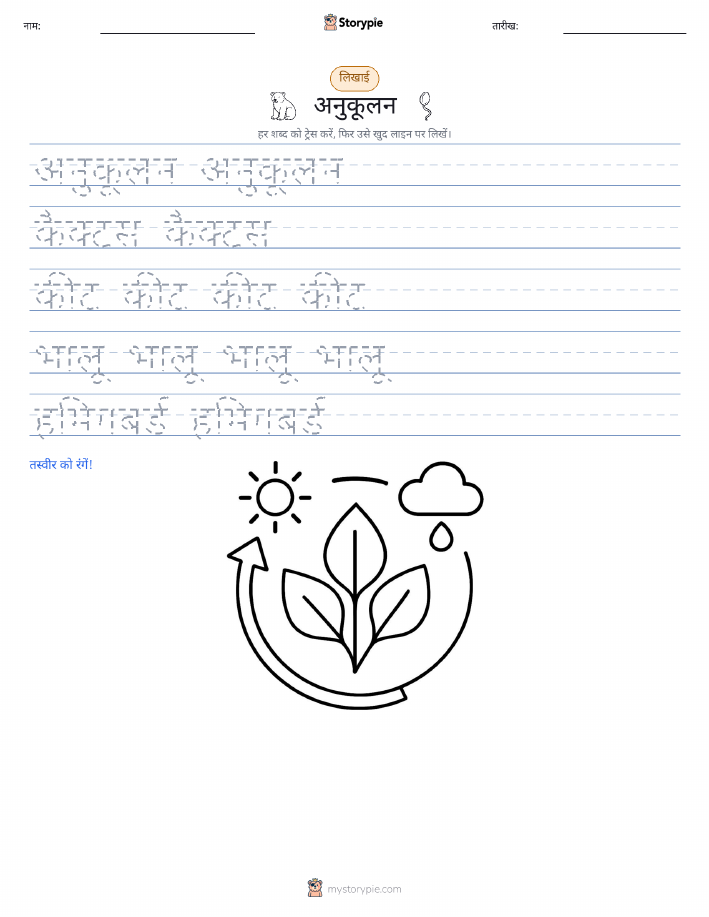 नाम: Storypie तारीख:
लिखाई
अनुकूलन
हर शब्द को ट्रेस करें, फिर उसे खुद लाइन पर लिखें।
अनुकूलन अनुकूलन
कैक्टस कैक्टस
कीट कीट कीट कीट
भालू भालू भालू भालू
हमिंगबर्ड हमिंगबर्ड
तस्वीर को रंगें!
mystorypie.com